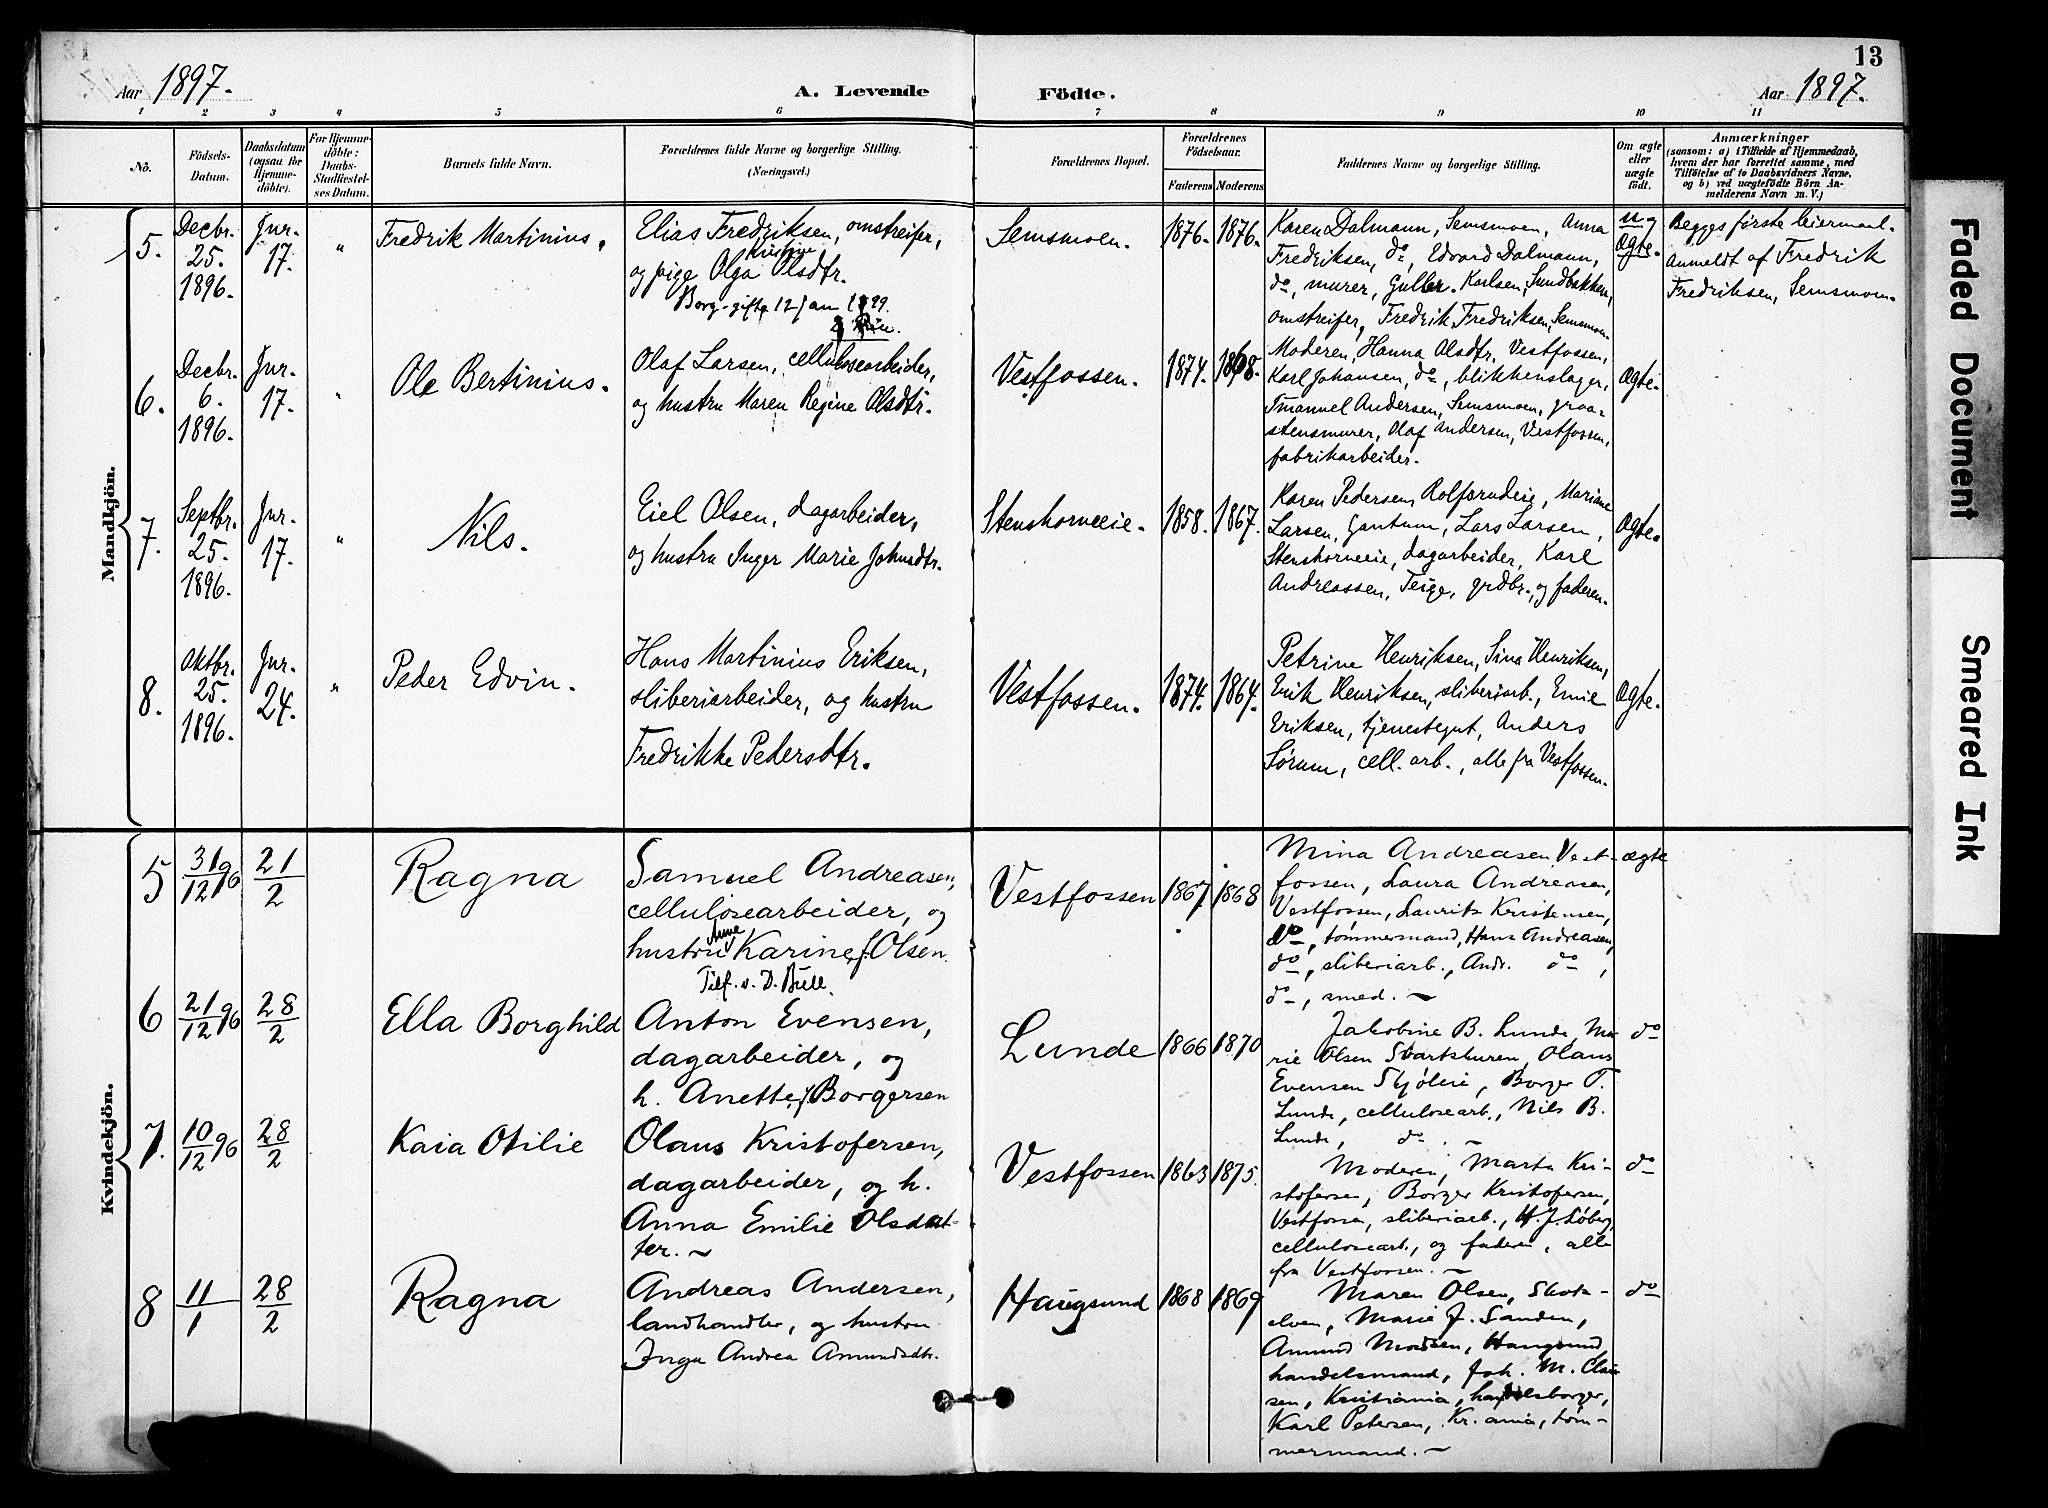 13
Aar 1897.
A. Levende
Födte.
Aar 1897.
1 2 3 4 5 6 7 8 9 10 11
No.
Födsels-
Datum.
Daabsdatum
(ogsaa for
Hjemme-
döbte).
For Hjemme-
döbte:
Daabs-
Stadfæstel-
ses Datum.
Barnets fulde Navn.
Forældrenes fulde Navne og borgerlige Stilling.
(Næringsvei.)
Forældrenes Bopæl.
Forældrenes
Födselsaar.
Faderens
Moderens
Faddernes Navne og borgerlige Stilling.
Om ægte
eller
uægte
födt.
Anmærkninger
(saasom: a) i Tilfælde af Hjemmedaab,
hvem der har forrettet samme, med
Tilföielse af to Daabsvidners Navne,
og b) ved uægtefödte Börn An-
melderens Navn m. V.)
Mandkjön.
5.
Decbr.
25.
1896.
Jnr.
17.
"
Fredrik Martinius.
Elias Fredriksen, omstreifer,
Kristine
og pige Olga Olsdtr.
Borg. gifte 12 Jan 1899.
Semsmoen.
1876.
1876.
Karen Dalmann, Semsmoen, Anna
Fredriksen, do, Edvard Dalmann,
do, murer, Gulbr. Karlsen, Sundbakken,
omstreifer, Fredrik Fredriksen, Semsmoen.
u-
Ægte.
Begges første leiermaal.
Anmeldt af Fredrik
Fredriksen, Semsmoen.
6.
Decbr.
6.
1896.
Jnr.
17.
"
Ole Bertinius.
Olaf Larsen, cellulosearbeider,
og hustru Maren Regine Olsdtr.
Vestfossen.
1874.
1868.
Moderen, Hanna Olsdtr, Vestfossen,
Karl Johansen, do, blikkenslager,
Emanuel Andersen, Semsmoen, graa-
stensmurer, Olaf Andersen, Vestfossen,
fabrikarbeider.
Ægte.
7.
Septbr.
25.
1896.
Jnr.
17.
"
Nils.
Eiel Olsen, dagarbeider,
og hustru Inger Marie Johnsdtr.
Stenshorneeie.
1858.
1867.
Karen Pedersen, Rolfsrudeie, Mariane
Larsen, Gantum, Lars Larsen,
Stenshorneeie, dagarbeider, Karl
Andreassen, Teige, grdbr., og faderen.
Ægte.
8.
Oktbr.
25.
1896.
Jnr.
24.
"
Peder Edvin.
Hans Martinius Eriksen,
sliberiarbeider, og hustru
Fredrikke Pedersdtr.
Vestfossen.
1874.
1864.
Petrine Henriksen, Sina Henriksen,
Erik Henriksen, sliberiarb., Emil
Eriksen, tjenestegut, Anders
Sørum, cell. arb., alle fra Vestfossen.
Ægte.
Kvindekjön.
5
31/12 96
21/2
Ragna
Samuel Andreasen,
cellulosearbeider, og
Anne
hustru Karine f. Olsen.
Tilf. v. D. Bull.
Vestfossen
1867.
1868
Mina Andreasen, Vest-
fossen, Laura Andreasen,
Vestfossen, Laurits Kristensen,
do, tømmermand, Hans Andreasen,
do, sliberiarb., Andr. do,
do, smed. ~
ægte
6
21/12 96
28/2
Ella Borghild
Anton Evensen,
dagarbeider, og
h. Anette f. Borgersen
Lunde
1866
1870
Jakobine B. Lunde, Ma-
rie Olsen Svartshuren, Olaus
Evensen Skjøleie, Borger T.
Lunde, cellulosearb., Nils B.
Lunde, do. ~
do
7.
10/12 96
28/2
Kaia Otilie
Olaus Kristofersen,
dagarbeider, og h.
Anna Emilie Olsdat-
ter. ~
Vestfossen
1863
1875.
Moderen, Marta Kri-
stofersen, Borger Kristofersen,
Vestfossen, sliberiarb., H. J. Løberg,
cellulosearb., og faderen, alle
fra Vestfossen. ~
do
8
11/1
28/2
Ragna
Andreas Andersen,
landhandler, og hustru
Inga Andrea Amundsdtr.
Haugsund
1868
1869
Maren Olsen, Skots-
elven, Marie J. Sanden,
Amund Madsen, Haugsund,
handelsmand, Joh. M. Clau-
sen, Kristiania, handelsborger,
Karl Petersen, Kr.ania, tøm-
mermand. ~
do
Faded Document
Smeared Ink